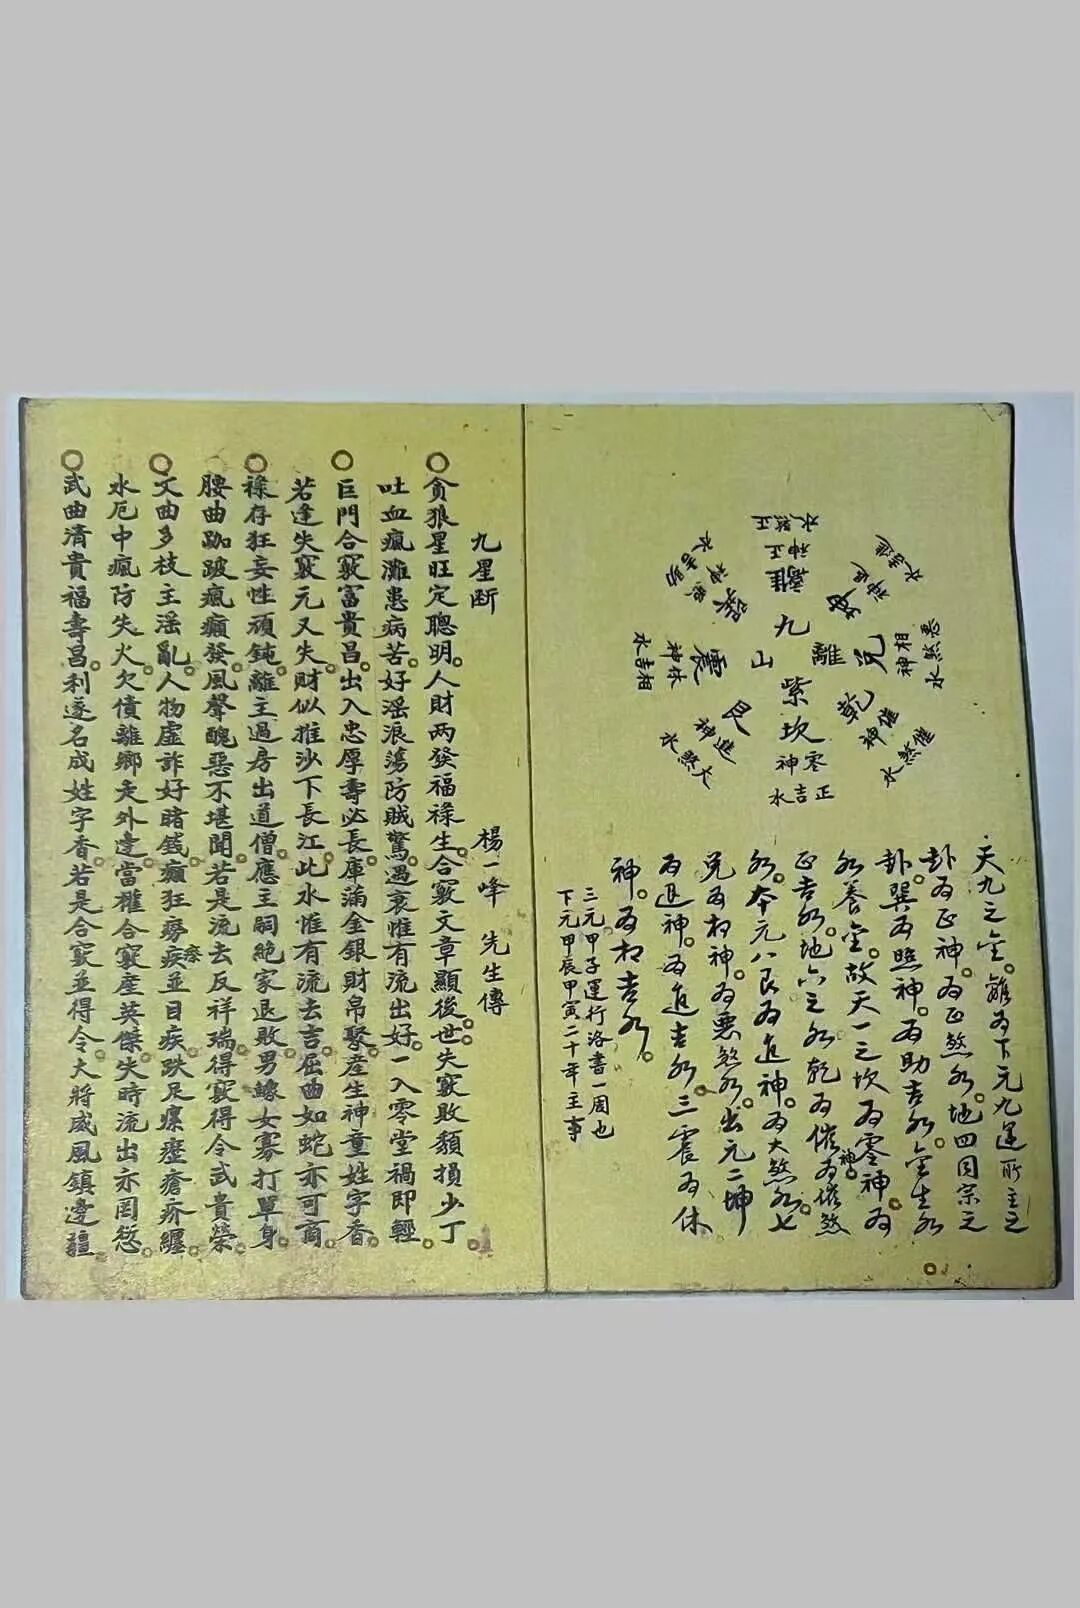 正煞水
正神
離
進吉水
退神
坤
惡煞水
相神
兌
催煞水
催神
乾
正吉水
零神
坎
大煞水
進神
艮
相吉水
休神
震
巽
九
離
山
紫
天九之金。離為下元九運所主之
卦為正神。為正煞水。地四同宗之
卦。巽為照神。為助吉水。金生水
水養金。故天一之坎為零神。為
正吉水。地六之水乾為催神為催煞
水。本元八艮為進神。為大煞水。七
兌為相神。為惡煞水。出元二坤
為退神。為進吉水。三震為休
神。為相吉水。
三元。甲子運行洛書一周也
下元甲辰甲寅二十年主事
九星斷 楊一峰 先生傳
貪狼星旺定聰明。人財兩發福祿生。合竅文章顯後世。失竅敗頹損少丁。
吐血瘋灘患病苦。好淫浪蕩防賊驚。遇衰惟有流出好。一入零堂禍即輕。
巨門合竅富貴昌。出入忠厚壽必長。庫滿金銀財帛聚。產生神童姓字香。
若逢失竅元又失。財似推沙下長江。此水惟有流去吉。屈曲如蛇亦可商。
祿存狂妄性頑鈍。離主過房出道僧。應主嗣絕家退敗。男鰥女寡打單身。
腰曲跏跛瘋癲發。風聲醜惡不堪聞。若是流去反祥瑞。得竅得令武貴榮。
文曲多枝主淫亂。人物虛詐好賭錢。癲狂癆疾並目疾。跌足瘰癧瘡疥纏。
水厄中瘋防失火。欠債離鄉走外邊。當權合竅產英傑。失時流出亦罔愆。
武曲清貴福壽昌。利遂名成姓字香。若是合竅並得令。大將威風鎮邊疆。